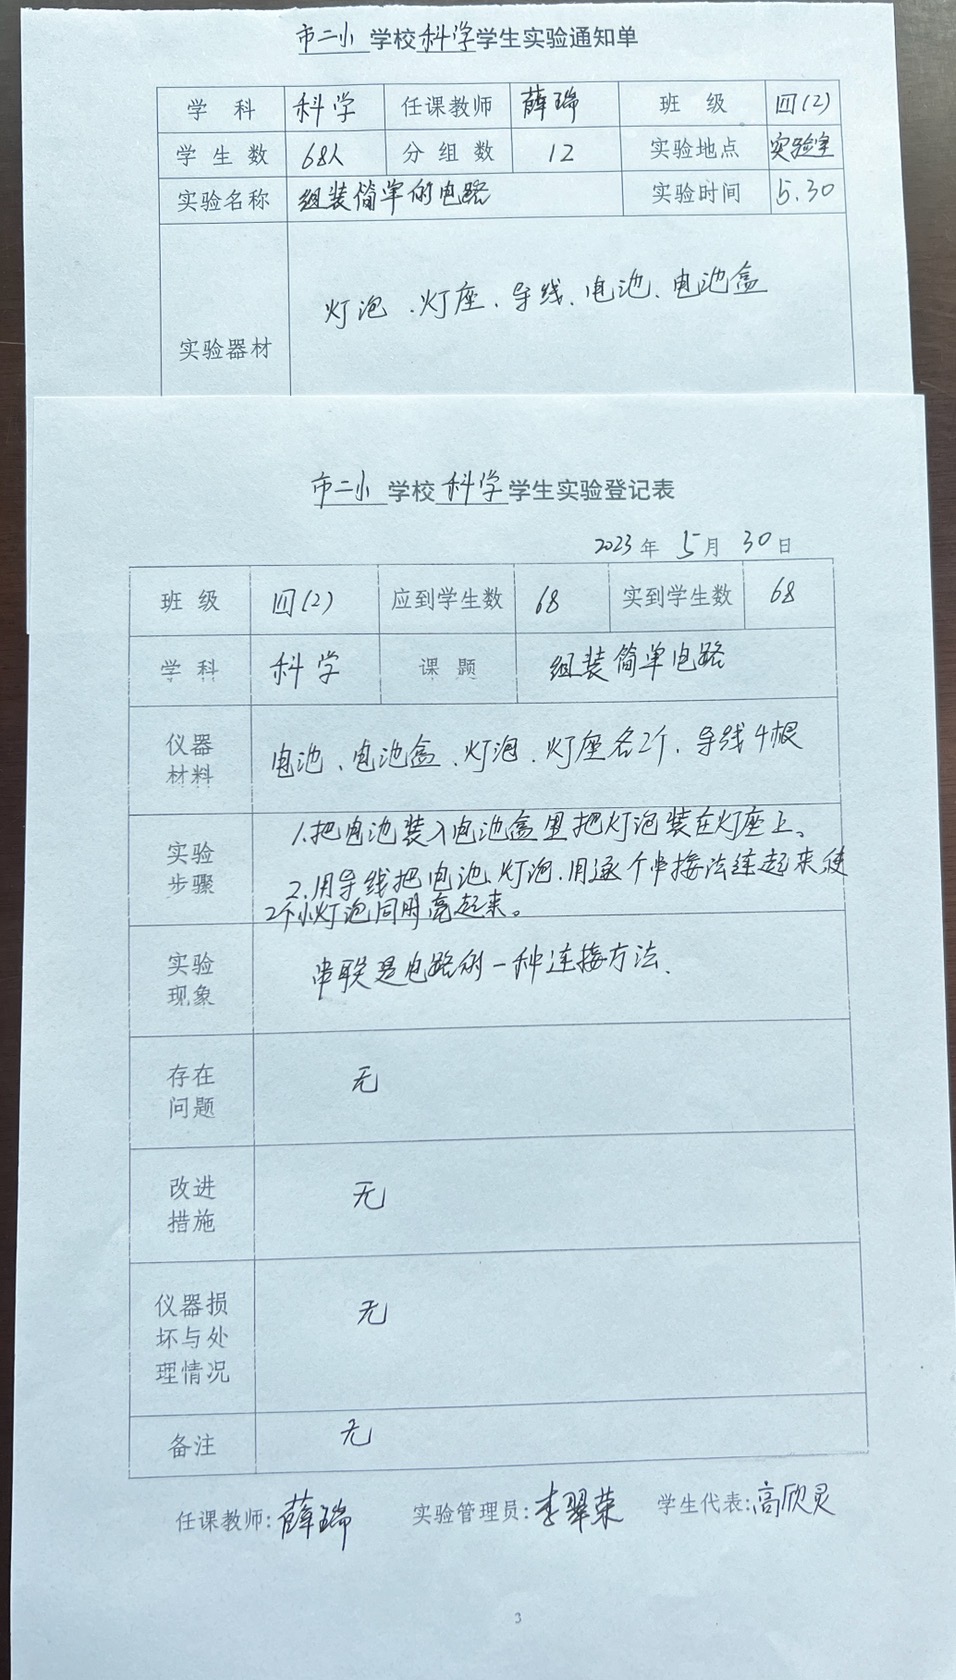 市二小 学校 科学 学生实验通知单
学 科 科学 任课教师 薛瑞 班 级 四(2)
学 生 数 68人 分 组 数 12 实验地点 实验室
实验名称 组装简单的电路 实验时间 5.30
灯泡、灯座、导线、电池、电池盒
实验器材
市二小 学校 科学 学生实验登记表
2023 年 5 月 30 日
班 级 四(2) 应到学生数 68 实到学生数 68
学 科 科学 课 题 组装简单电路
仪器
材料
电池、电池盒、灯泡、灯座各2个、导线4根
实验
步骤
1.把电池装入电池盒里把灯泡装在灯座上。
2.用导线把电池、灯泡、用逐个串接法连起来使
2个小灯泡同时亮起来。
实验
现象
串联是电路的一种连接方法、
存在
问题
无
改进
措施
无
仪器损
坏与处
理情况
无
备注 无
任课教师:薛瑞 实验管理员:李翠荣 学生代表:高欣灵
3